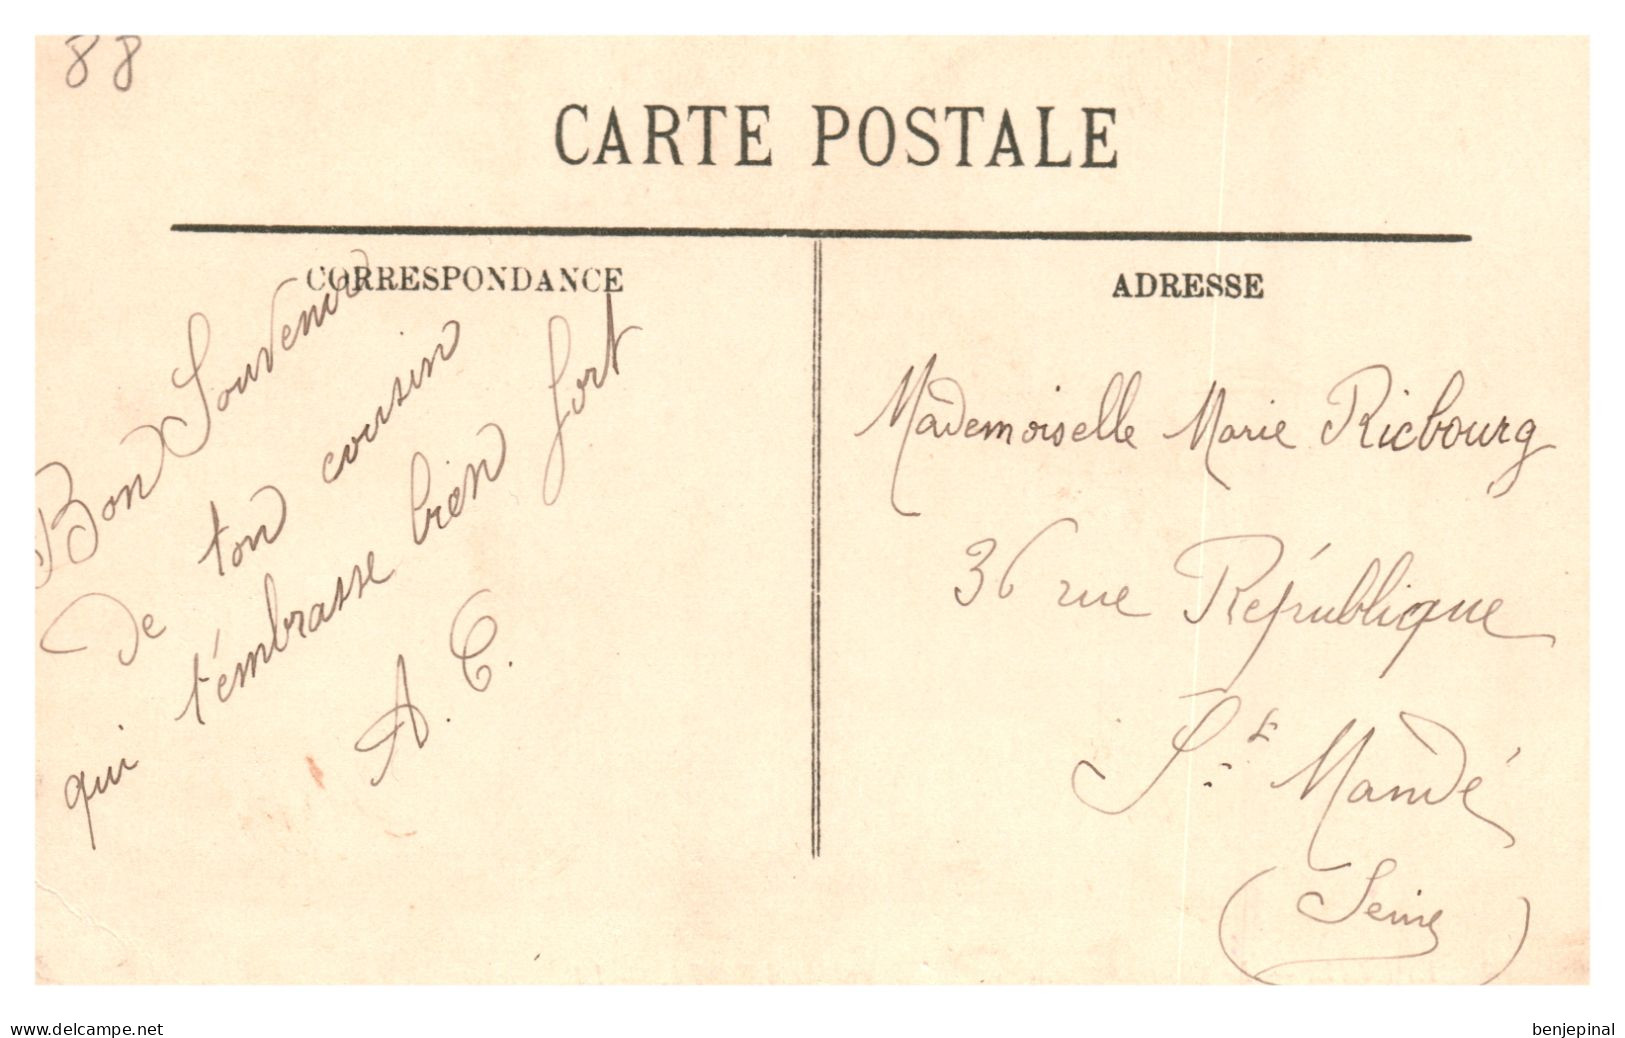 88
CARTE POSTALE
CORRESPONDANCE
Bon Souvenir
de ton cousin
qui t'émbrasse bien fort
A. C.
ADRESSE
Mademoiselle Marie Ricbourg
36 rue République
St. Mandé
(Seine)
www.delcampe.net
benjepinal